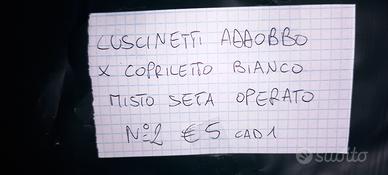 CUSCINETTI ADDOBBO
X COPRILETTO BIANCO
MISTO SETA OPERATO
N:2 € 5 CAD1
subito